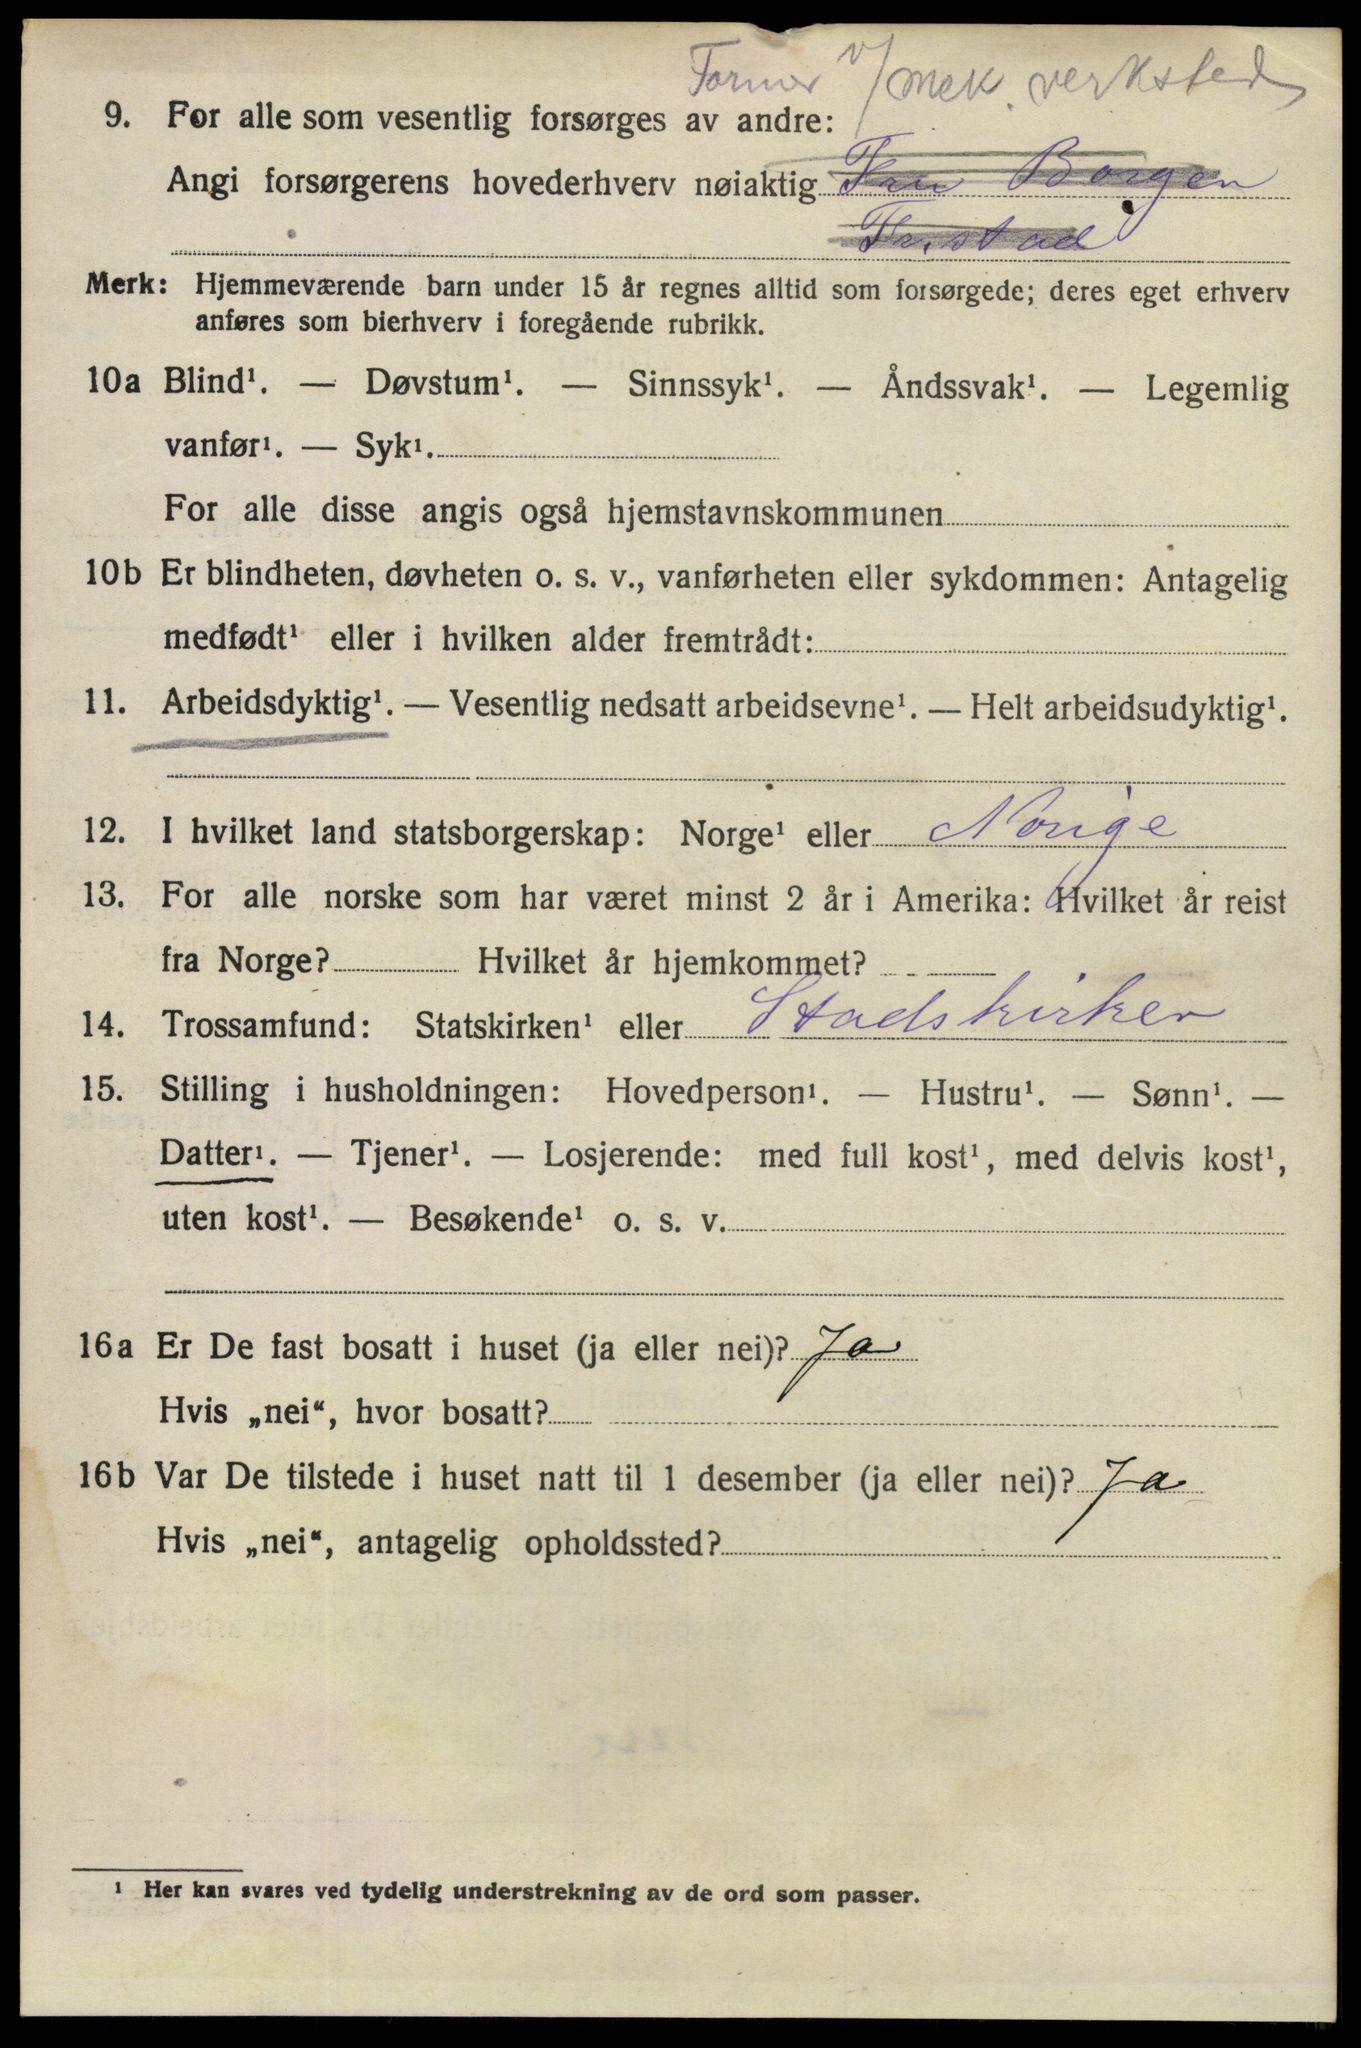 Former v/ mek. verksted
9. For alle som vesentlig forsørges av andre:
Angi forsørgerens hovederhverv nøiaktig Fru Borgen
Fr.stad
Merk: Hjemmeværende barn under 15 år regnes alltid som forsørgede; deres eget erhverv
anføres som bierhverv i foregående rubrikk.
10a Blind¹. — Døvstum¹. — Sinnssyk¹. — Åndssvak¹. — Legemlig
vanfør¹. — Syk¹.
For alle disse angis også hjemstavnskommunen
10b Er blindheten, døvheten o. s. v., vanførheten eller sykdommen: Antagelig
medfødt¹ eller i hvilken alder fremtrådt:
11. Arbeidsdyktig¹. — Vesentlig nedsatt arbeidsevne¹. — Helt arbeidsudyktig¹.
12. I hvilket land statsborgerskap: Norge¹ eller Norige
13. For alle norske som har været minst 2 år i Amerika: Hvilket år reist
fra Norge? Hvilket år hjemkommet?
14. Trossamfund: Statskirken¹ eller Stadskirken
15. Stilling i husholdningen: Hovedperson¹. — Hustru¹. — Sønn¹. —
Datter¹. — Tjener¹. — Losjerende: med full kost¹, med delvis kost¹,
uten kost¹. — Besøkende¹ o. s. v.
16a Er De fast bosatt i huset (ja eller nei)? Ja
Hvis „nei“, hvor bosatt?
16b Var De tilstede i huset natt til 1 desember (ja eller nei)? Ja
Hvis „nei“, antagelig opholdssted?
¹ Her kan svares ved tydelig understrekning av de ord som passer.